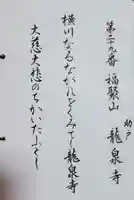 第二十九番 福聚山 助戸 龍泉寺
横川なるながれをくみて龍泉寺
大慈大悲のちかいたふとし